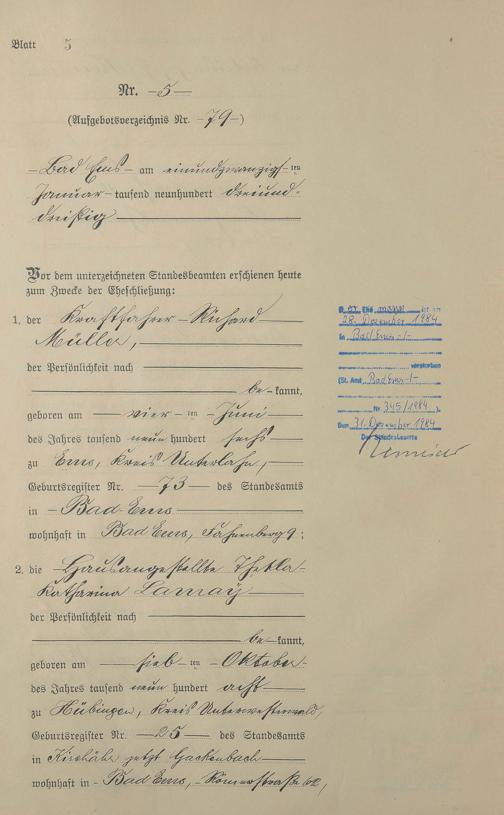 Blatt 5
Nr. 5
(Aufgebotsverzeichnis Nr. 79)
Bad Ems am einundzwanzigsten
Januar tausend neunhundert dreiund-
dreißig
Vor dem unterzeichneten Standesbeamten erschienen heute
zum Zwecke der Eheschließung:
1. der Kraftfahrer Richard
Müller,
der Persönlichkeit nach
be kannt,
geboren am vier ten Juni
des Jahres tausend neun hundert sechs
zu Ems, Kreis Unterlahn,
Geburtsregister Nr. 73 des Standesamts
in Bad Ems
wohnhaft in Bad Ems, Fahnenberg 9;
2. die Hausangestellte Thekla
Katharina Lamay
der Persönlichkeit nach
be kannt,
geboren am sieb ten Oktober
des Jahres tausend neun hundert acht
zu Hübingen, Kreis Unterwesterwald,
Geburtsregister Nr. 25 des Standesamts
in Kirchähr jetzt Gackenbach
wohnhaft in Bad Ems, Römerstraße 62,
Ehemann ist am
28. Dezember 1984
in Bad Ems -/-
verstorben
(St. Amt Bad Ems -/-
Nr. 345/1984 ).
Den 31. Dezember 1984
Der Standesbeamte